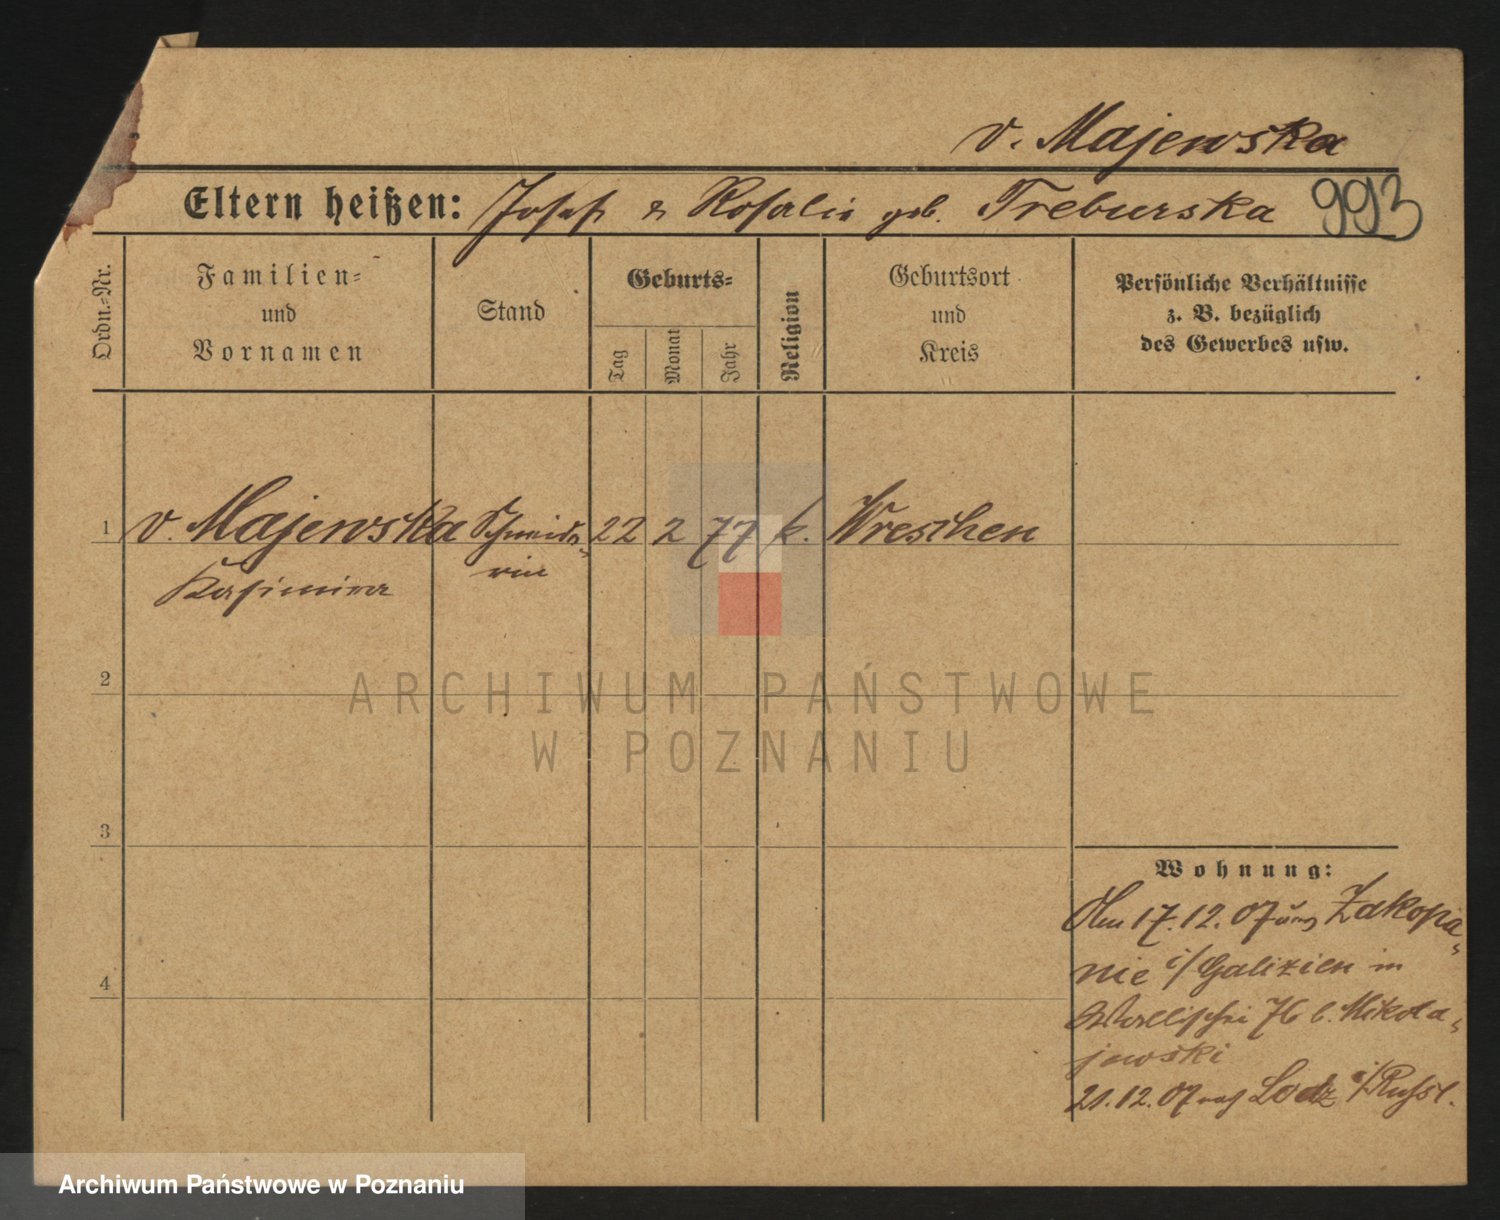 v. Majewska
Eltern heißen: Josef & Rosalie geb. Treburska 993
Ordn.-Nr.
Familien-
und
Vornamen
Stand
Geburts-
Tag
Monat
Jahr
Religion
Geburtsort
und
Kreis
Persönliche Verhältnisse
z. B. bezüglich
des Gewerbes usw.
1 v. Majewska Schneide- 22 2 77 k. Wreschen
Kasimira rin
2
ARCHIWUM PAŃSTWOWE
W POZNANIU
3
Wohnung:
Am 17.12.07 aus Zakopa-
nie i/Galizien in
Wallischei 76 b. Mikola-
jewski
4
21.12.07 nach Lodz i/Russl.
Archiwum Państwowe w Poznaniu